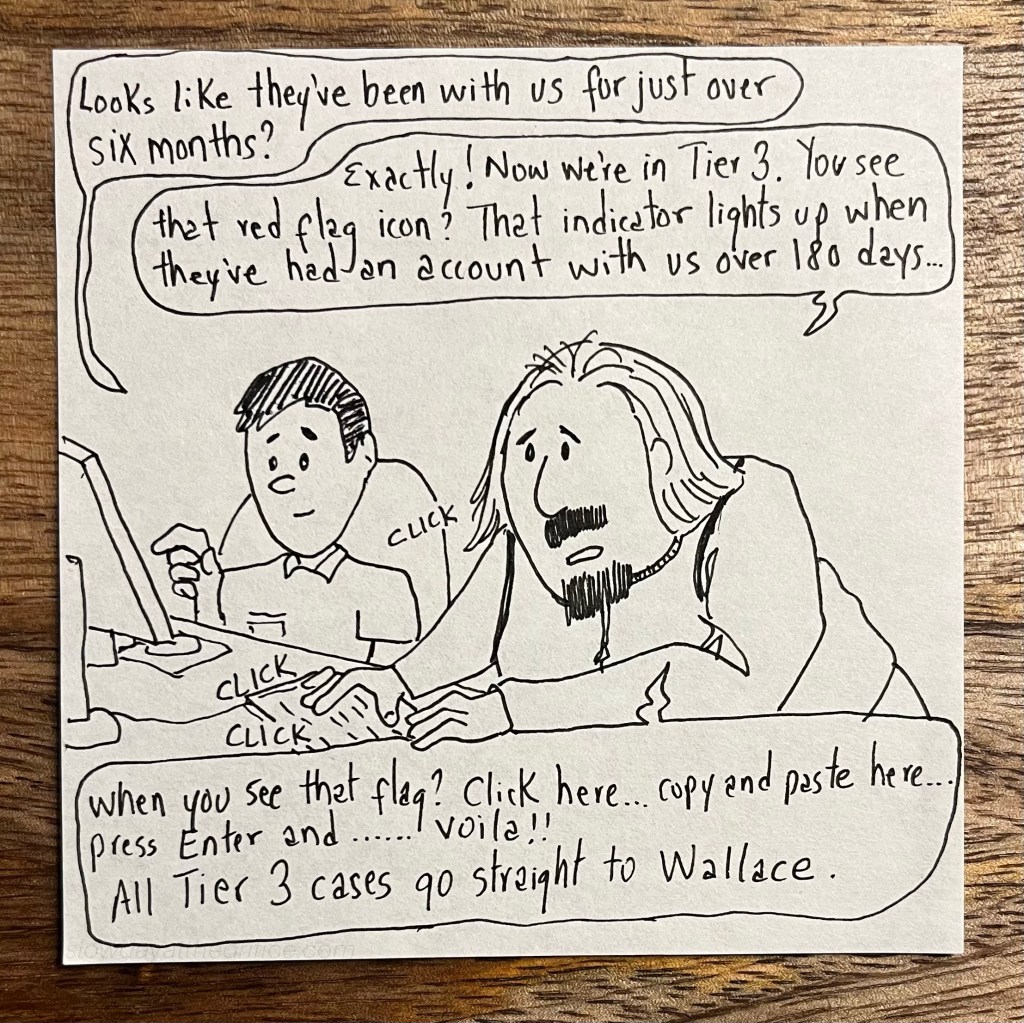 Looks like they've been with us for just over
six months?
Exactly! Now we're in Tier 3. You see
that red flag icon? That indicator lights up when
they've had an account with us over 180 days...
CLICK
CLICK
CLICK
when you see that flag? Click here... copy and paste here...
press Enter and ...... voila!!
All Tier 3 cases go straight to Wallace.